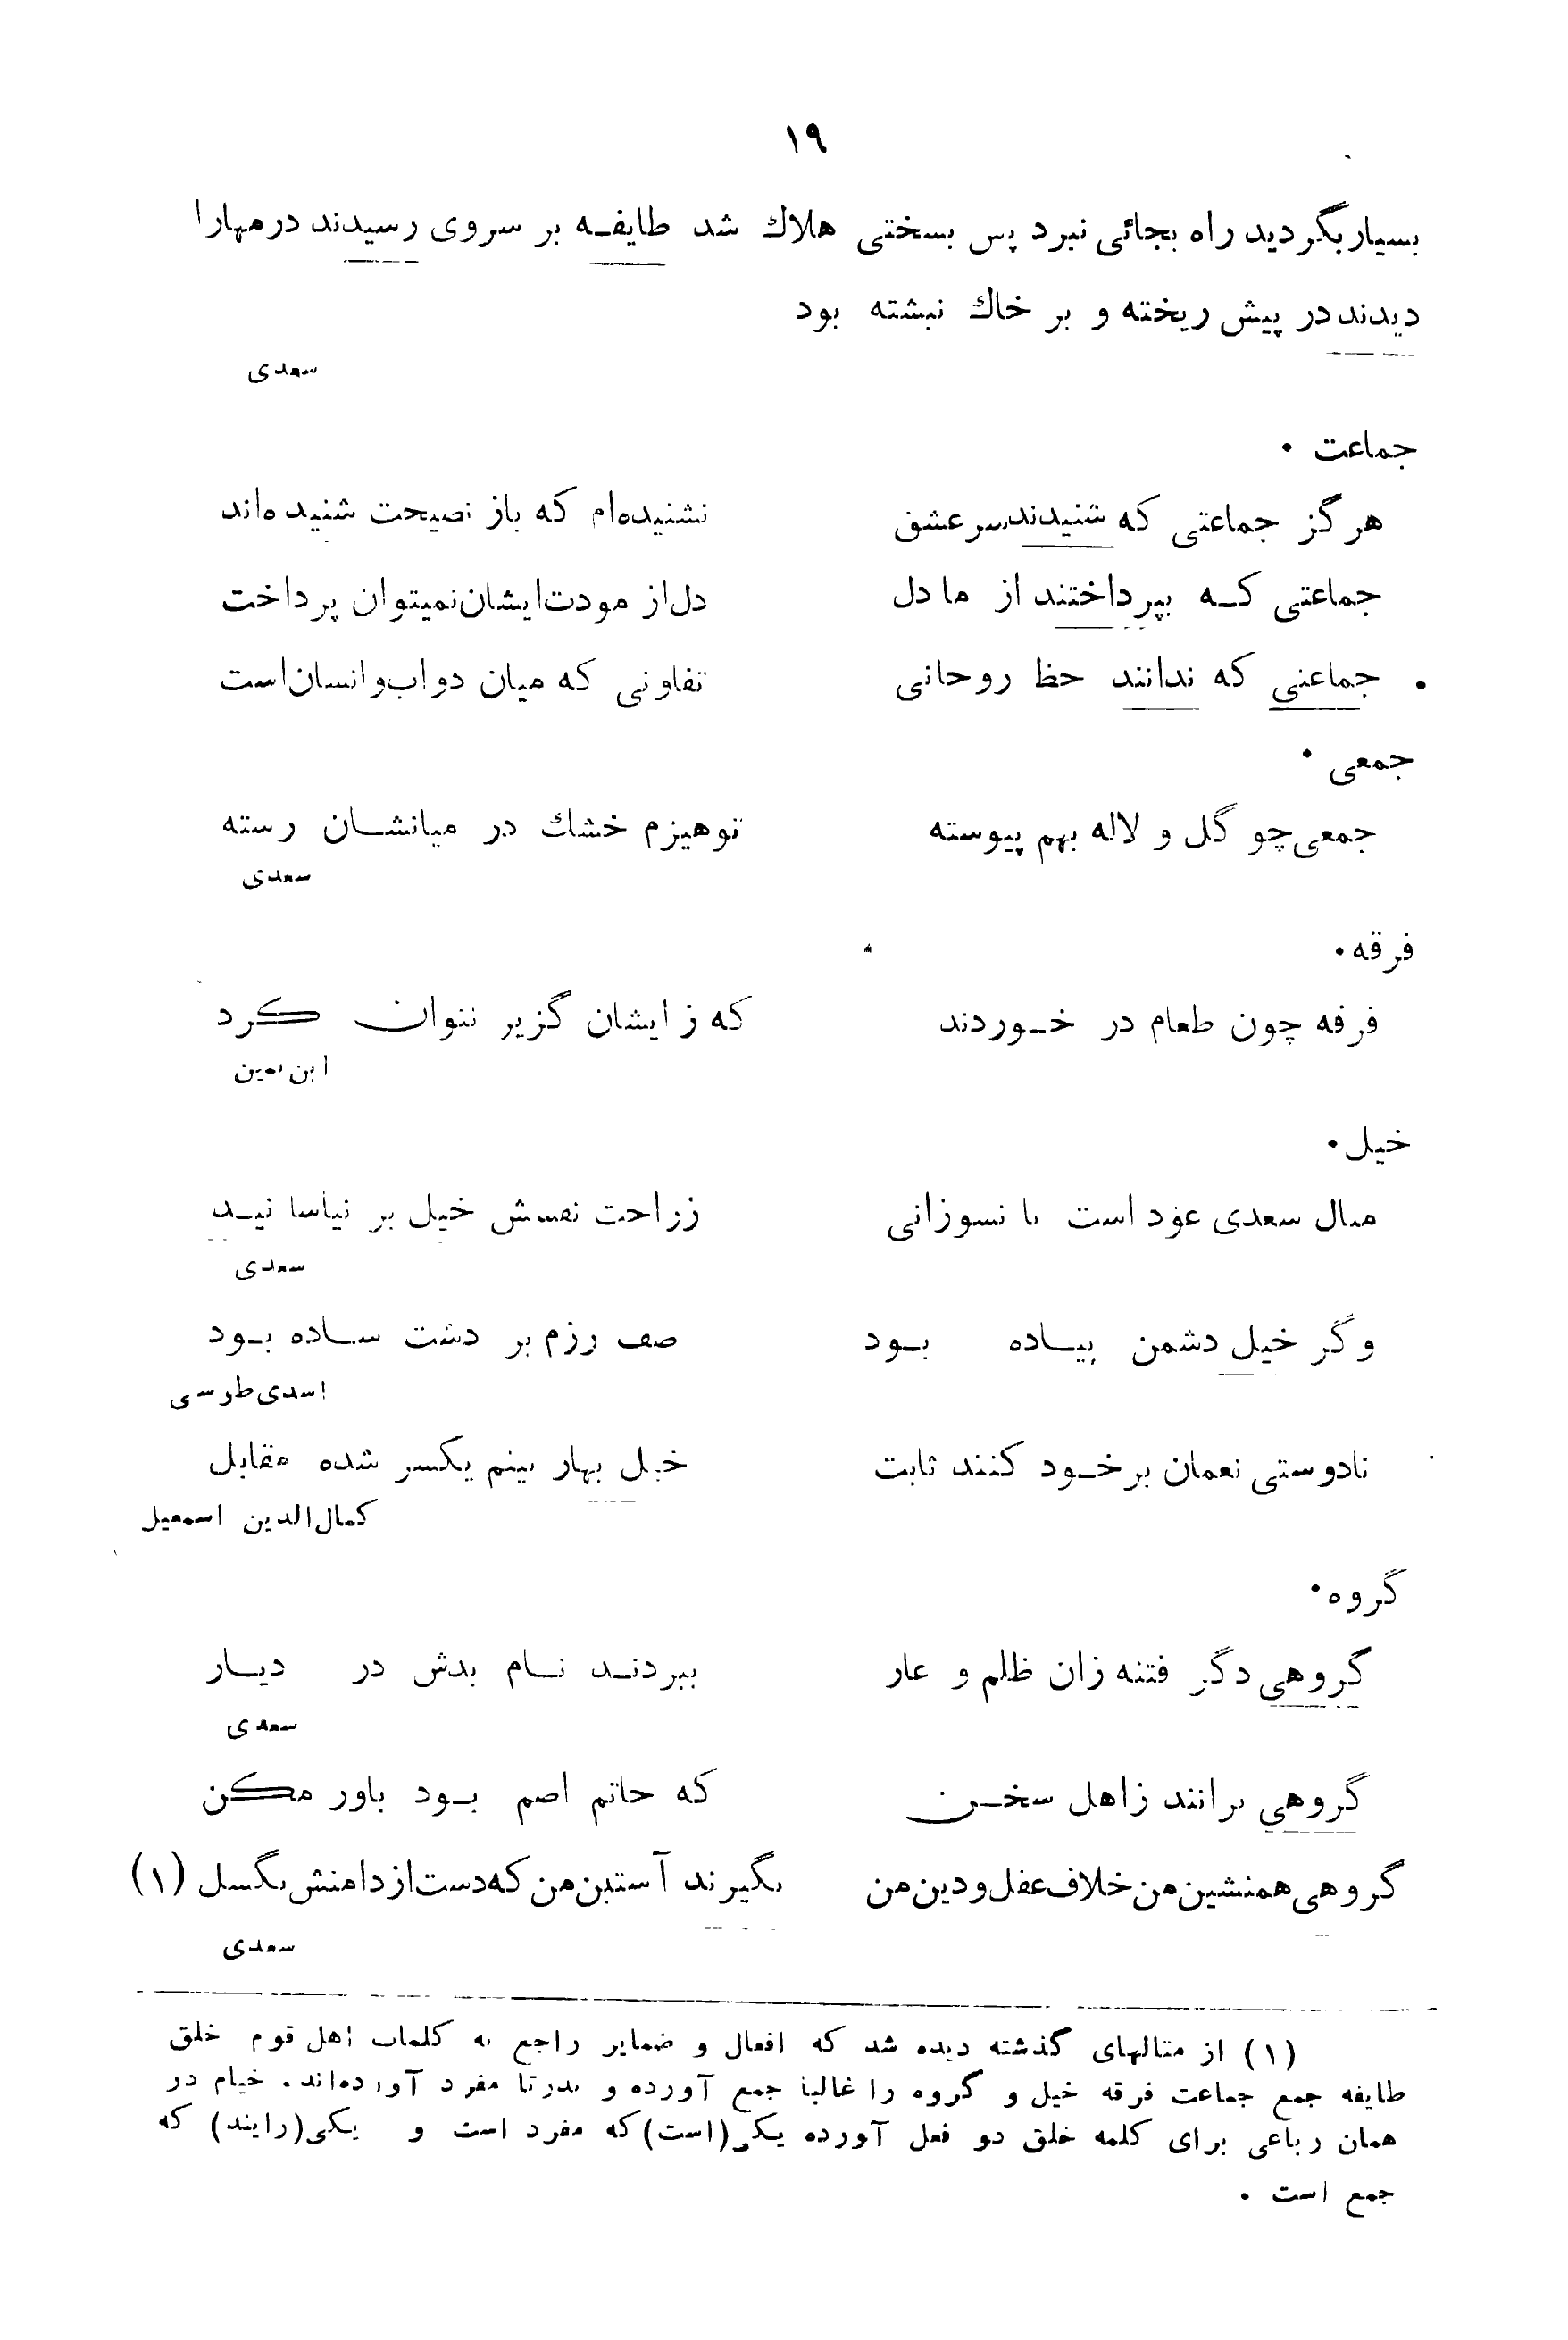 ۱۹
بسیار بگردید راه بجائی نبرد پس بسختی هلاك شد طایفـه بر سروی رسیدند درمها را
دیدند در پیش ریخته و بر خاك نبشته بود
سعدی
جماعت ۰
هرگز جماعتی که شنیدند سر عشق نشنیده‌ام که باز نصیحت شنیده‌اند
جماعتی کـه بپرداختند از ما دل دل از مودت ایشان نمیتوان پرداخت
جماعتی که ندانند حظ روحانی تفاوتی که میان دواب و انسان است
جمعی ۰
جمعی چو گل و لاله بهم پیوسته تو هیزم خشك در میانشـان رسته
سعدی
فرقه ۰
فرقه چون طعام در خـوردند که ز ایشان گزیر نتوان کرد
ابن یمین
خیل ۰
مـال سعدی عود است تا نسوزانی ز راحت نفسش خیل بر نیاسا نیـد
سعدی
و گر خیل دشمن پیـاده بـود صف رزم بر دشت سـاده بـود
اسدی طوسی
تا دوستی نعمان بر خـود کنند ثابت خیل بهار بینم یکسر شده مقابل
کمال‌الدین اسمعیل
گروه ۰
گروهی دگر فتنه زان ظلم و عار ببردنـد نـام بدش در دیـار
سعدی
گروهی برانند ز اهل سخـن که حاتم اصم بـود باور مکن
گروهی همنشین من خلاف عقل و دین من بگیرند آستین من که دست از دامنش بگسل (۱)
سعدی
(۱) از مثالهای گذشته دیده شد که افعال و ضمایر راجع به کلمات اهل قوم خلق
طایفه جمع جماعت فرقه خیل و گروه را غالباً جمع آورده و ندرتا مفرد آورده‌اند . خیام در
همان رباعی برای کلمه خلق دو فعل آورده یکی (است) که مفرد است و یکی (رایند) که
جمع است .